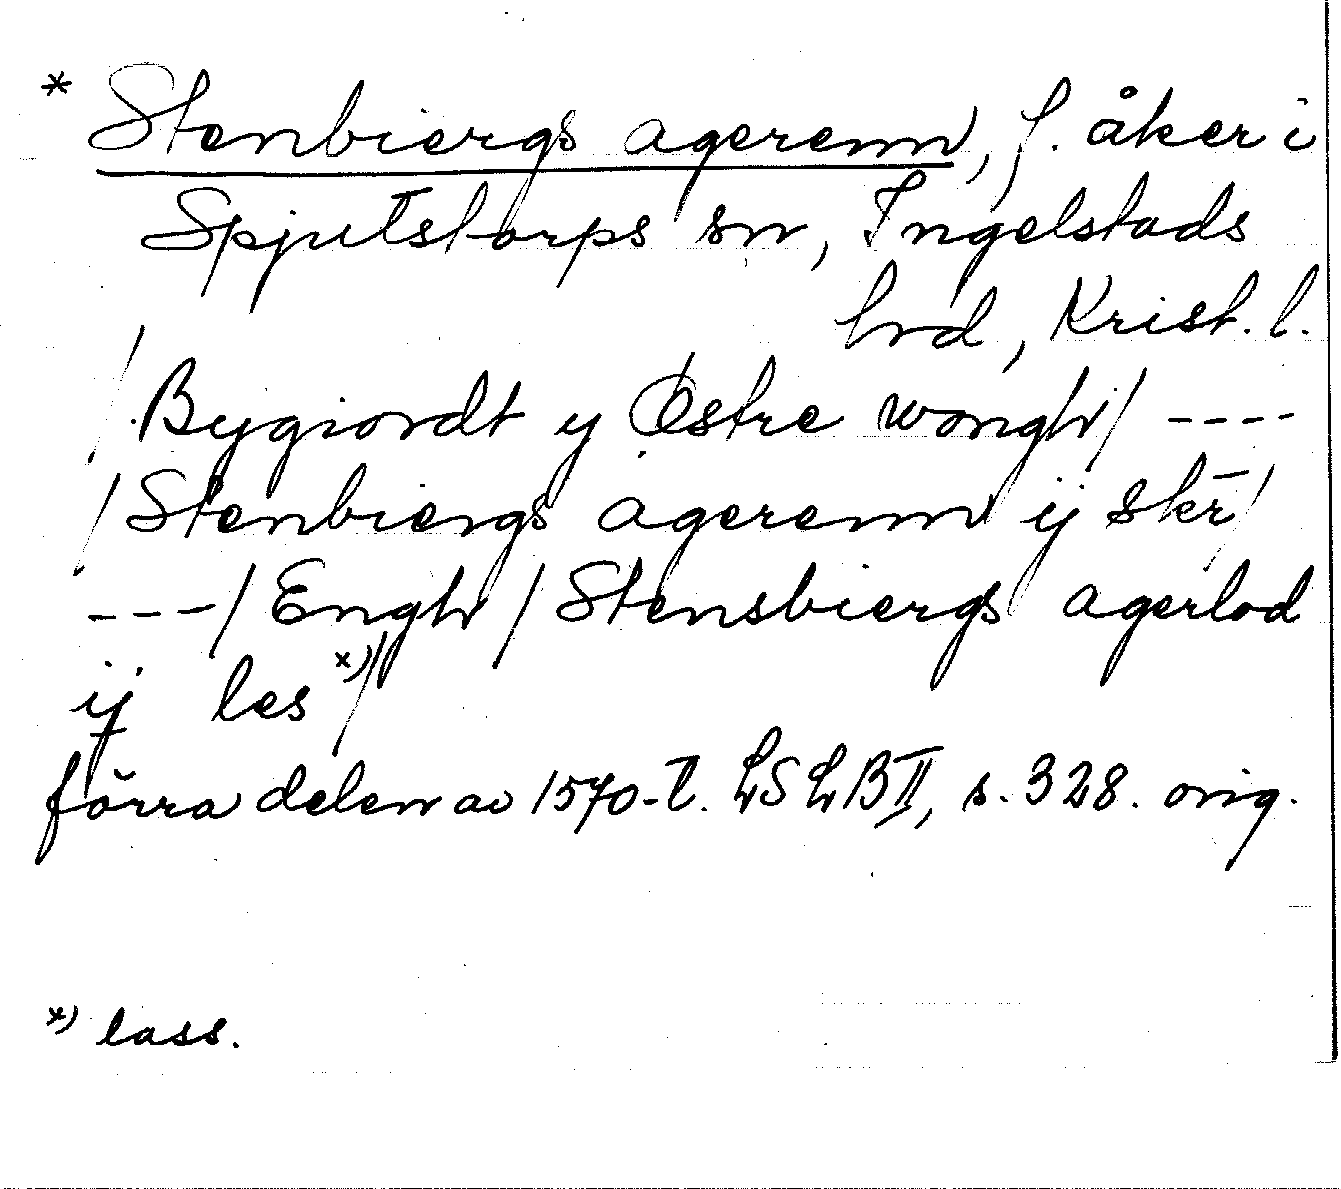 * Stenbiergs agerenn, f. åker i
Spjutstorps sn, Ingelstads
hrd, Krist. l.
/Bygiordt y Østre wongh/ ----
/Stenbiergs agerenn ij skr̄/
---/Engh/Stensbiergs agerlod
ij les x)/
förra delen av 1570-t. LSLB II, s. 328. orig.
x) lass.